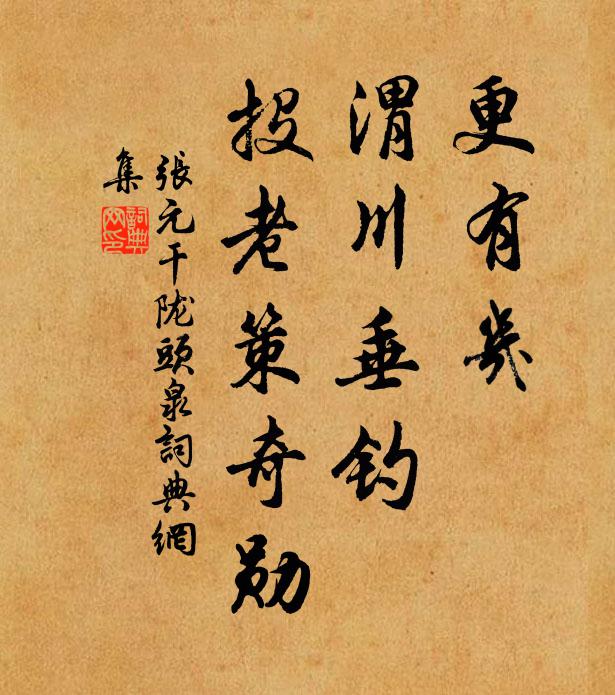 更有幾
渭川垂钓
投老策奇勋
張元干陇頭泉詞典網
集
詞典
网印